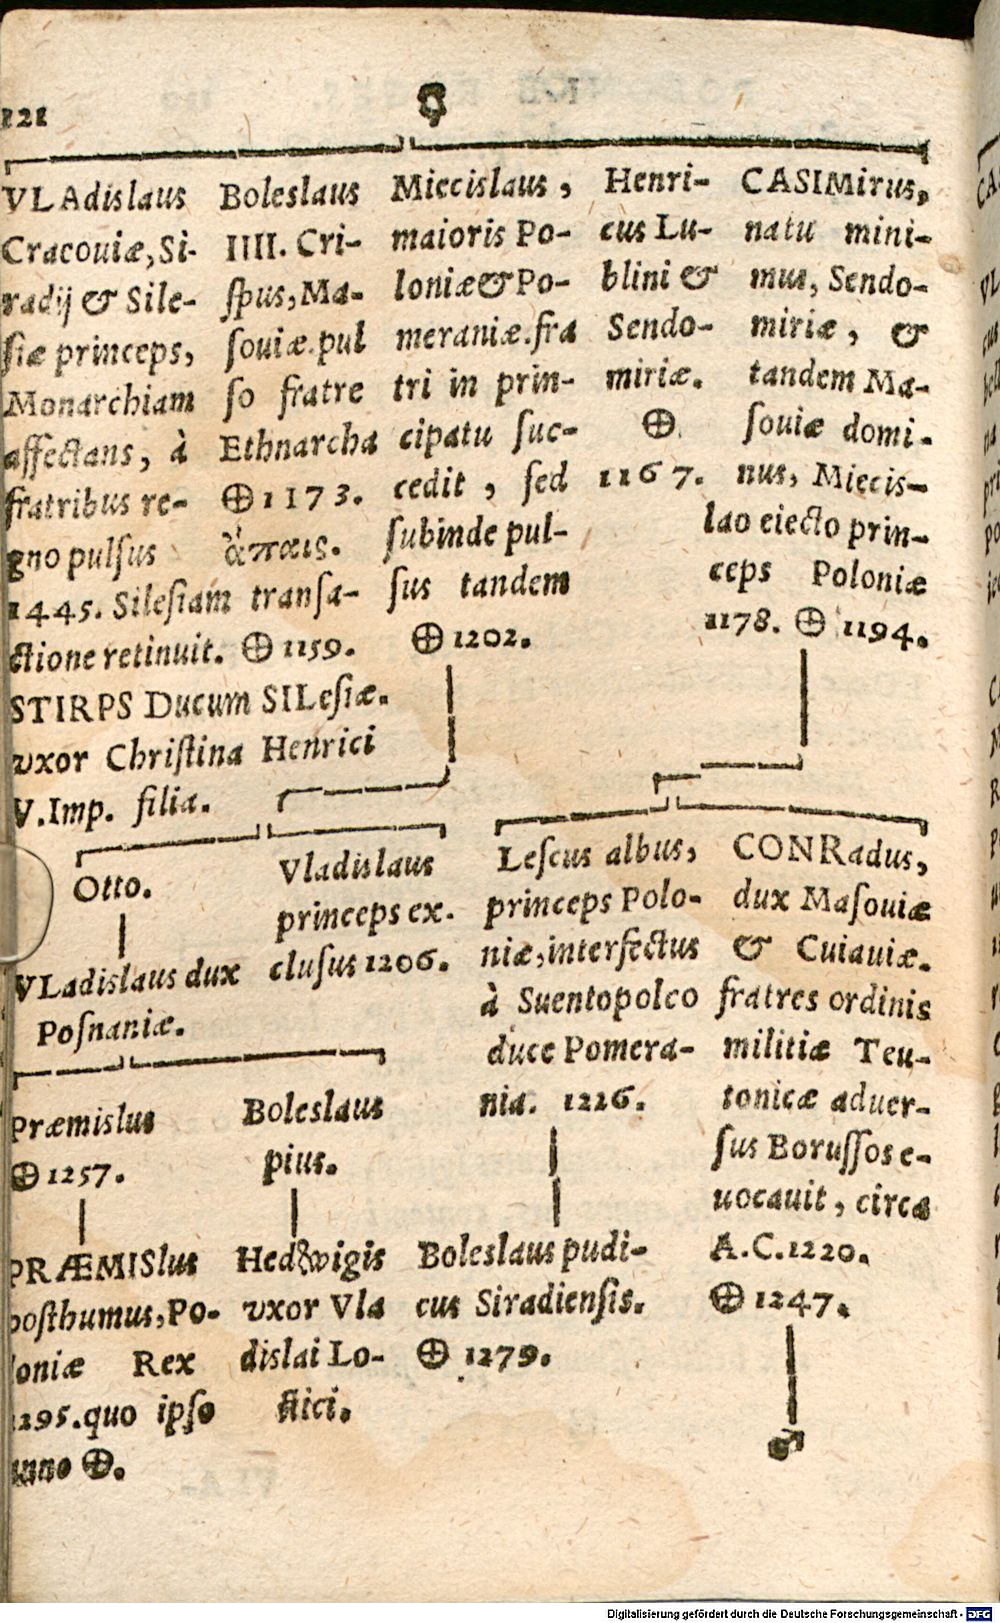 121
VLAdislaus
Cracouiæ, Si-
radij & Sile-
ſiæ princeps,
Monarchiam
affectans, à
fratribus re-
gno pulſus
1445. Sileſiam transa-
ctione retinuit. ⊕ 1159.
STIRPS Ducum SILeſiæ.
vxor Chriſtina Henrici
V. Imp. filia.
Boleslaus
IIII. Cri-
ſpus, Ma-
ſouiæ. pul
ſo fratre
Ethnarcha
⊕ 1173.
ἄπαις.
Miecislaus,
maioris Po-
loniæ & Po-
meraniæ. fra
tri in prin-
cipatu ſuc-
cedit, ſed
ſubinde pul-
ſus tandem
⊕ 1202.
Henri-
cus Lu-
blini &
Sendo-
miriæ.
⊕.
1167.
CASIMirus,
natu mini-
mus, Sendo-
miriæ, &
tandem Ma-
ſouiæ domi-
nus, Miecis-
lao eiecto prin-
ceps Poloniæ
1178. ⊕ 1194.
Otto.
VLadislaus dux
Poſnaniæ.
Vladislaus
princeps ex.
cluſus 1206.
Leſcus albus,
princeps Polo-
niæ, interfectus
à Suentopolco
duce Pomera-
nia. 1226.
CONRadus,
dux Maſouiæ
& Cuiauiæ.
fratres ordinis
militiæ Teu-
tonicæ aduer-
ſus Boruſſos e-
uocauit, circa
A.C. 1220.
⊕ 1247.
Præmislus
⊕ 1257.
Boleslaus
pius.
PRÆMISlus
posthumus, Po-
loniæ Rex
1295. quo ipſo
anno ⊕.
Hedwigis
vxor Vla
dislai Lo-
ctici.
Boleslaus pudi-
cus Siradienſis.
⊕ 1279.
♂
Digitalisierung gefördert durch die Deutsche Forschungsgemeinschaft - DFG